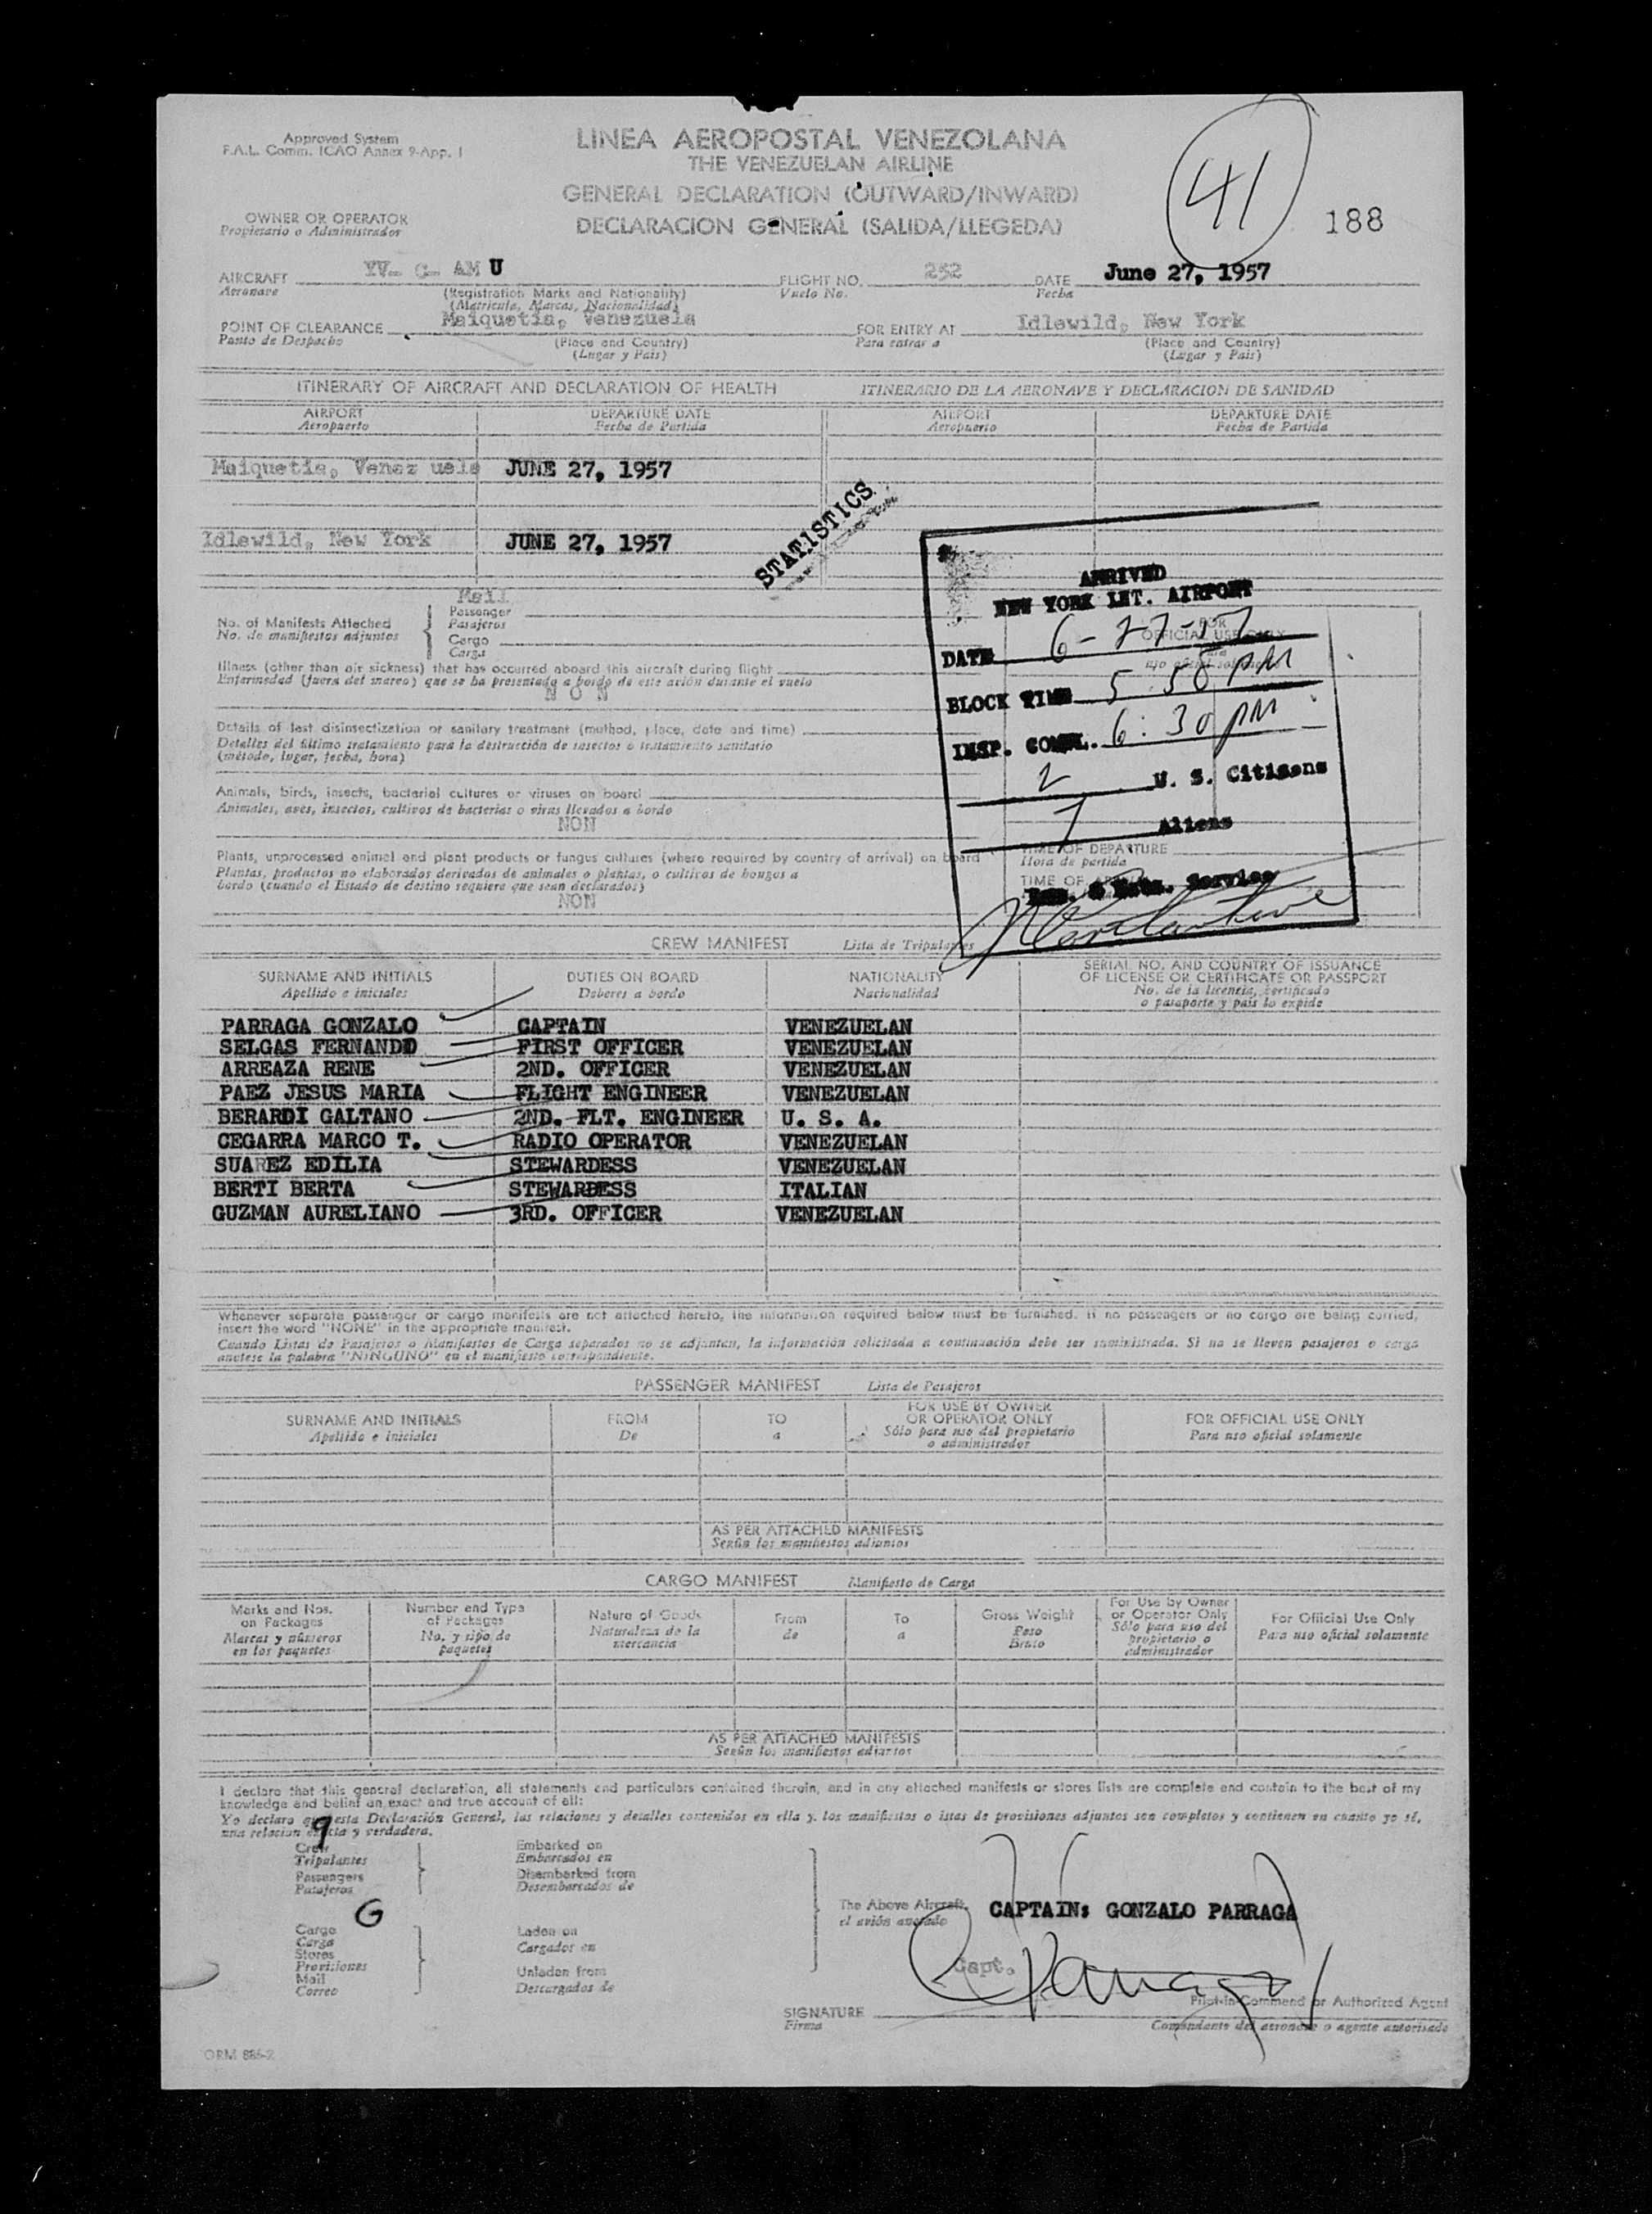 Approved System
F.A.L. Comm. ICAO Annex 9-App. 1
LINEA AEROPOSTAL VENEZOLANA
THE VENEZUELAN AIRLINE
GENERAL DECLARATION (OUTWARD/INWARD)
DECLARACION GENERAL (SALIDA/LLEGEDA)
41
188
OWNER OR OPERATOR
Propietario o Administrador
AIRCRAFT YV- C- AM U FLIGHT NO. 252 DATE June 27, 1957
Aeronave (Registration Marks and Nationality) Vuelo No. Fecha
(Matricula, Marcas, Nacionalidad)
POINT OF CLEARANCE Maiquetia, Venezuela FOR ENTRY AT Idlewild, New York
Punto de Despacho (Place and Country) Para entrar a (Place and Country)
(Lugar y Pais) (Lugar y Pais)
ITINERARY OF AIRCRAFT AND DECLARATION OF HEALTH ITINERARIO DE LA AERONAVE Y DECLARACION DE SANIDAD
AIRPORT DEPARTURE DATE AIRPORT DEPARTURE DATE
Aeropuerto Fecha de Partida Aeropuerto Fecha de Partida
Maiquetia, Venez uela JUNE 27, 1957
Idlewild, New York JUNE 27, 1957
STATISTICS
ARRIVED
NEW YORK INT. AIRPORT
DATE 6-27-57
BLOCK TIME 5:58 PM
INSP. COMPL. 6:30 PM
2 U. S. Citizens
7 Aliens
Imm. & Natz. Service
FOR
OFFICIAL USE ONLY
Para
uso oficial solamente
TIME OF DEPARTURE
Hora de partida
TIME OF
Mail
No. of Manifests Attached
No. de manifiestos adjuntos
Passenger
Pasajeros
Cargo
Carga
Illness (other than air sickness) that has occurred aboard this aircraft during flight
Enfermedad (fuera del mareo) que se ha presentado a bordo de este avión durante el vuelo
N O N
Details of last disinsectization or sanitary treatment (method, place, date and time)
Detalles del último tratamiento para la destrucción de insectos o tratamiento sanitario
(método, lugar, fecha, hora)
Animals, birds, insects, bacterial cultures or viruses on board
Animales, aves, insectos, cultivos de bacterias o virus llevados a bordo
NON
Plants, unprocessed animal and plant products or fungus cultures (where required by country of arrival) on board
Plantas, productos no elaborados derivados de animales o plantas, o cultivos de hongos a
bordo (cuando el Estado de destino requiere que sean declarados)
NON
CREW MANIFEST Lista de Tripulantes
SURNAME AND INITIALS DUTIES ON BOARD NATIONALITY SERIAL NO. AND COUNTRY OF ISSUANCE
OF LICENSE OR CERTIFICATE OR PASSPORT
Apellido e iniciales Deberes a bordo Nacionalidad No. de la licencia, certificado
o pasaporte y pais lo expide
PARRAGA GONZALO CAPTAIN VENEZUELAN
SELGAS FERNANDO FIRST OFFICER VENEZUELAN
ARREAZA RENE 2ND. OFFICER VENEZUELAN
PAEZ JESUS MARIA FLIGHT ENGINEER VENEZUELAN
BERARDI GALTANO 2ND. FLT. ENGINEER U. S. A.
CEGARRA MARCO T. RADIO OPERATOR VENEZUELAN
SUAREZ EDILIA STEWARDESS VENEZUELAN
BERTI BERTA STEWARDESS ITALIAN
GUZMAN AURELIANO 3RD. OFFICER VENEZUELAN
Whenever separate passenger or cargo manifests are not attached hereto, the information required below must be furnished. If no passengers or no cargo are being carried,
insert the word "NONE" in the appropriate manifest.
Cuando Listas de Pasajeros o Manifiestos de Carga separados no se adjuntan, la información solicitada a continuación debe ser suministrada. Si no se lleven pasajeros o carga
anotese la palabra "NINGUNO" en el manifiesto correspondiente.
PASSENGER MANIFEST Lista de Pasajeros
SURNAME AND INITIALS FROM TO FOR USE BY OWNER
OR OPERATOR ONLY FOR OFFICIAL USE ONLY
Apellido e iniciales De a Sólo para uso del propietario
o administrador Para uso oficial solamente
AS PER ATTACHED MANIFESTS
Según los manifiestos adjuntos
CARGO MANIFEST Manifiesto de Carga
Marks and Nos.
on Packages
Marcas y números
en los paquetes
Number and Type
of Packages
No. y tipo de
paquetes
Nature of Goods
Naturaleza de la
mercancia
From
de
To
a
Gross Weight
Peso
Bruto
For Use by Owner
or Operator Only
Sólo para uso del
propietario o
administrador
For Official Use Only
Para uso oficial solamente
AS PER ATTACHED MANIFESTS
Según los manifiestos adjuntos
I declare that this general declaration, all statements and particulars contained therein, and in any attached manifests or stores lists are complete and contain to the best of my
knowledge and belief an exact and true account of all:
Yo declaro que esta Declaración General, las relaciones y detalles contenidos en ella y los manifiestos o listas de provisiones adjuntos son completos y contienen en cuanto yo sé,
una relacion exacta y verdadera.
9
Crew
Tripulantes
Passengers
Pasajeros
G
Cargo
Carga
Stores
Provisiones
Mail
Correo
Embarked on
Embarcados en
Disembarked from
Desembarcados de
Laden on
Cargados en
Unladen from
Descargados de
The Above Aircraft.
el avión anotado
CAPTAIN: GONZALO PARRAGA
Capt.
SIGNATURE
Firma
Pilot-in-Command or Authorized Agent
Comandante del aeronave o agente autorisado
ORM 885-2